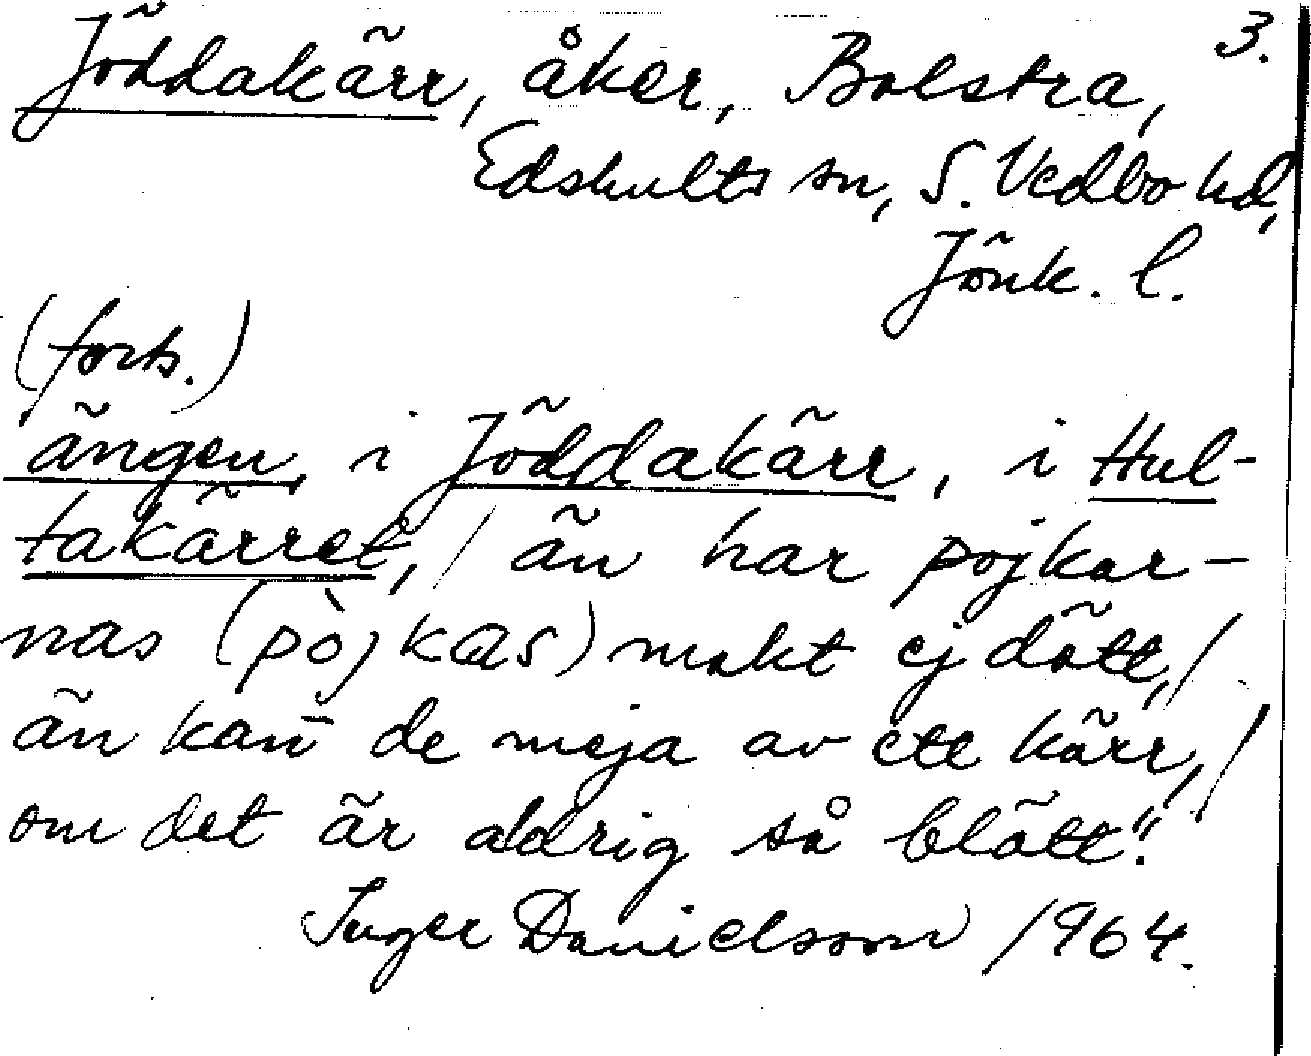 3.
Jöddakärr, åker, Bolstra,
Edshults sn, S. Vedbo hd,
Jönk. l.
(forts.)
ängen, i Jöddakärr, i Hul-
takärret, / än har pojkar-
nas (pòjkas) makt ej dött, /
än kan de meja av ett kärr, /
om det är aldrig så blött".
Inger Danielsson 1964.